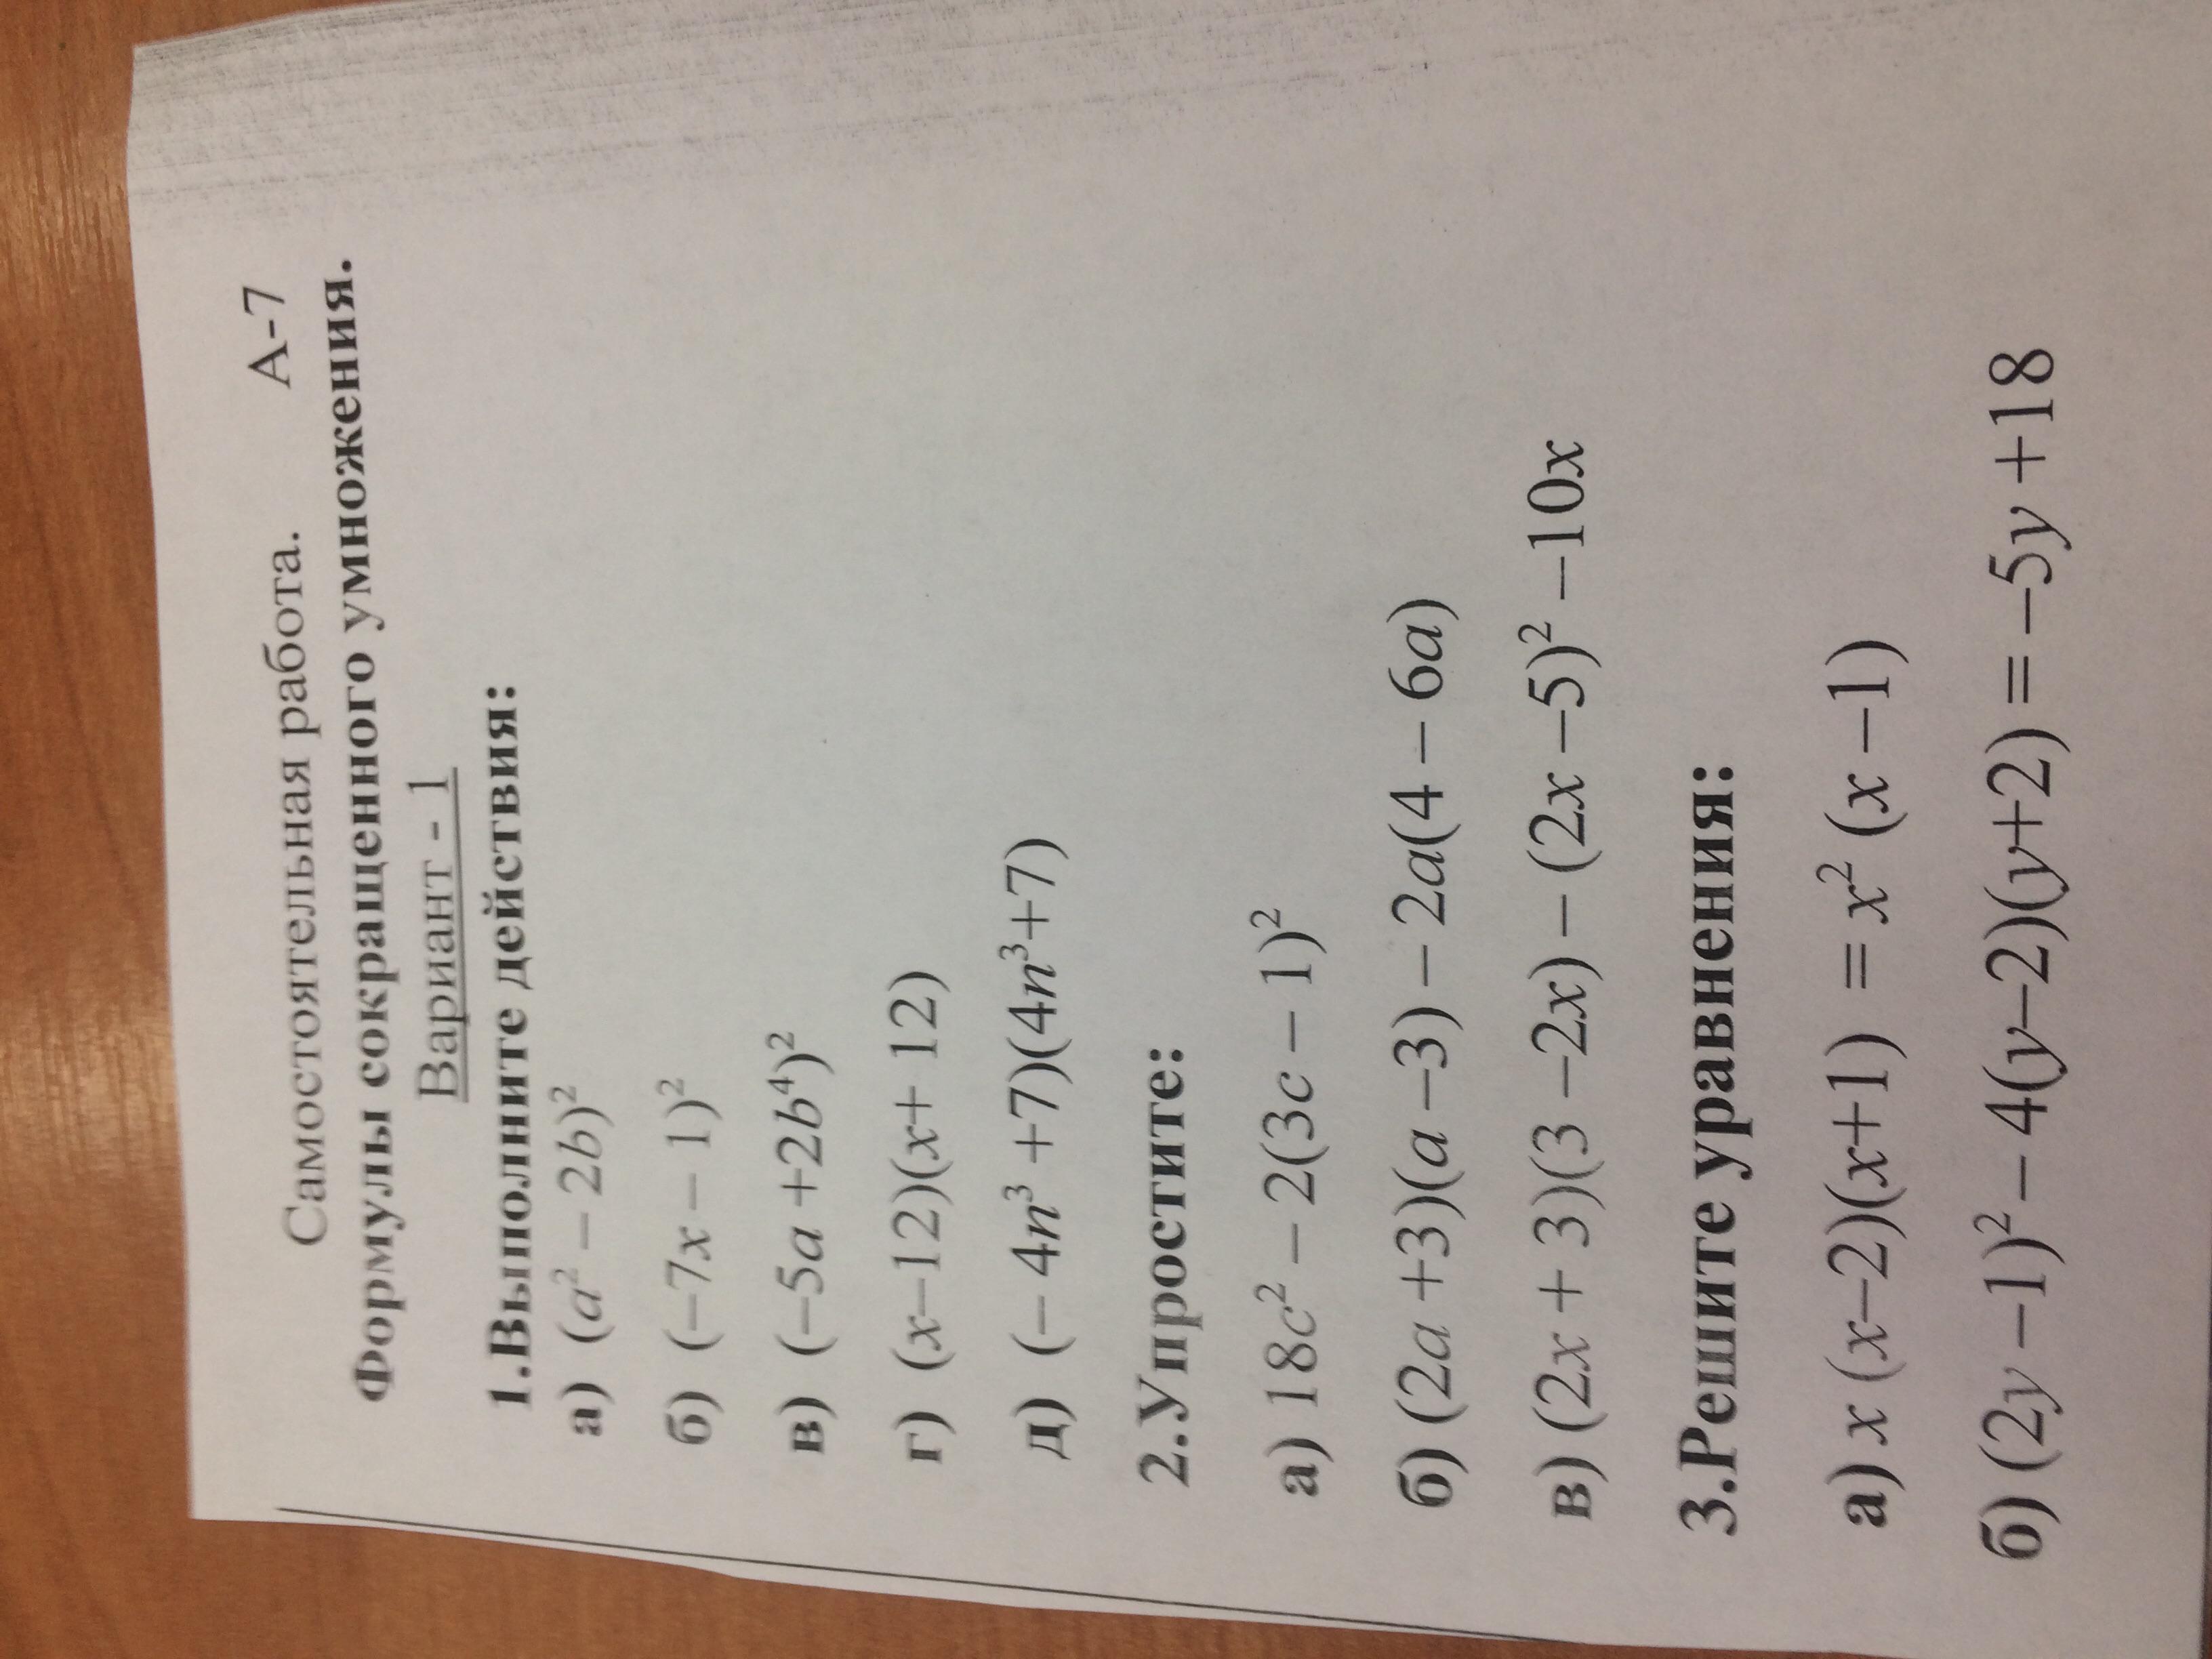 Самостоятельная работа. А-7
Формулы сокращенного умножения.
Вариант - 1
1.Выполните действия:
а) (a² – 2b)²
б) (–7x – 1)²
в) (–5a +2b⁴)²
г) (x–12)(x+ 12)
д) (– 4n³ +7)(4n³+7)
2.Упростите:
а) 18c² – 2(3c – 1)²
б) (2a +3)(a –3) – 2a(4 – 6a)
в) (2x + 3)(3 –2x) – (2x –5)² –10x
3.Решите уравнения:
а) x (x–2)(x+1) = x² (x –1)
б) (2y –1)² – 4(y–2)(y+2) = –5y +18